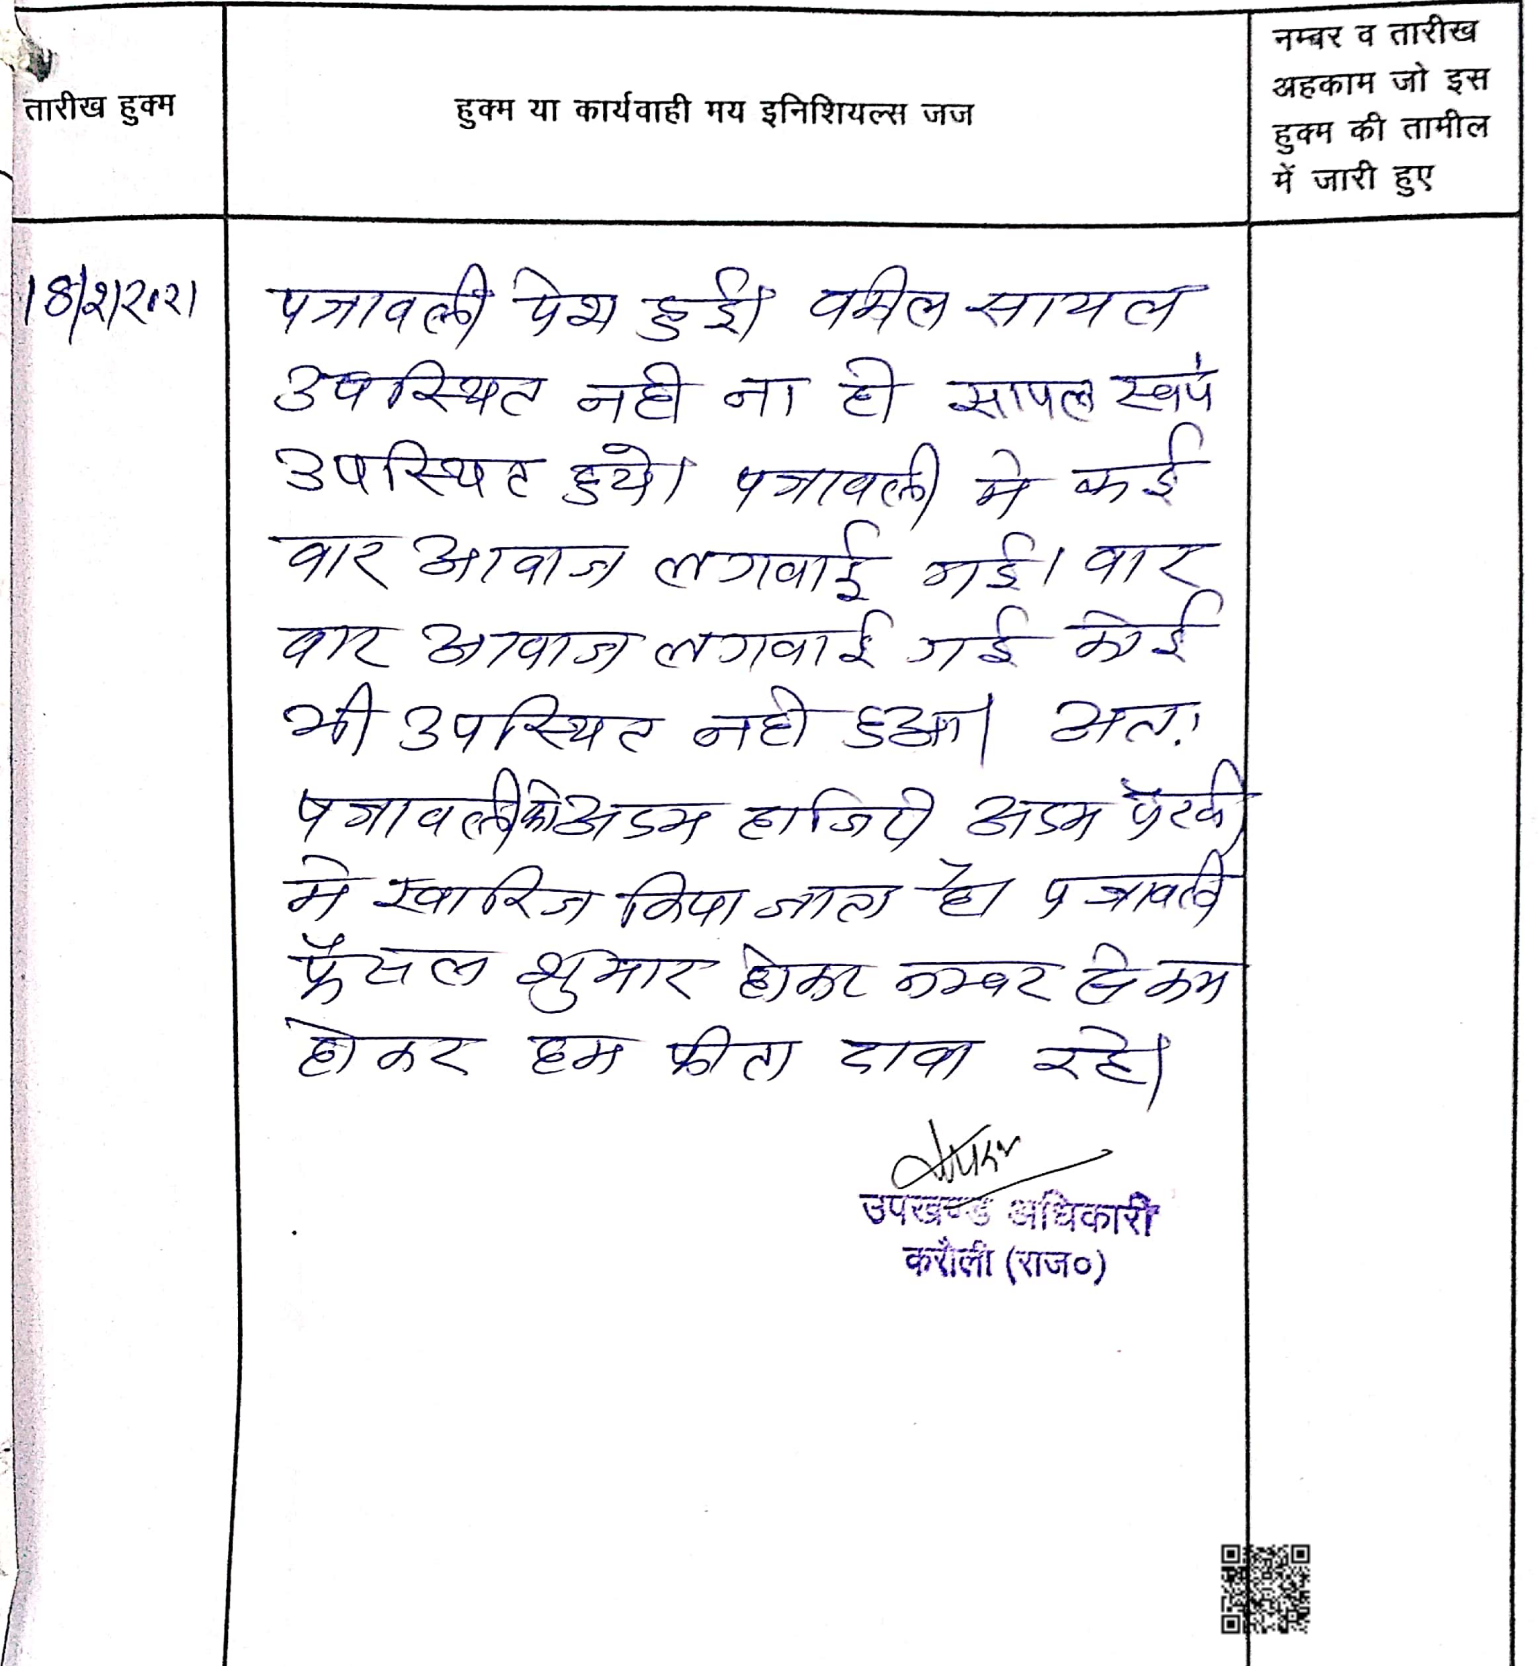 तारीख हुक्म
हुक्म या कार्यवाही मय इनिशियल्स जज
नम्बर व तारीख
अहकाम जो इस
हुक्म की तामील
में जारी हुए
18/2/2021
पत्रावली पेश हुई। वकील सायल
उपस्थित नही ना ही सायल स्वयं
उपस्थित हुये। पत्रावली मे कई
वार आवाज लगवाई गई। वार
वार आवाज लगवाई गई कोई
भी उपस्थित नही हुआ। अतः
पत्रावली को अदम हाजिरी अदम पैरवी
मे खारिज किया जाता है। पत्रावली
फैसल शुमार होकर नम्वर से कम
होकर हम फीता दावा रहे।
उपखण्ड अधिकारी
करौली (राज०)